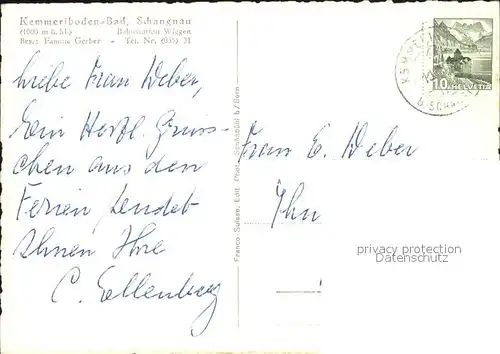 Kemmeriboden-Bad, Schangnau
(1000 m ü. M.) Bahnstation Wiggen
Bes.: Familie Gerber - Tel. Nr. (035) 31
Liebe Frau Weber,
Ein Herzl. Grüss-
chen aus den
Ferien, sendet
Ihnen Ihre
C. Ellenberg
Franco Suisse, Edit. Phot.
b/Bern
Frau E. Weber
Thun
10 HELVETIA
b. SCHA
privacy protection
Datenschutz